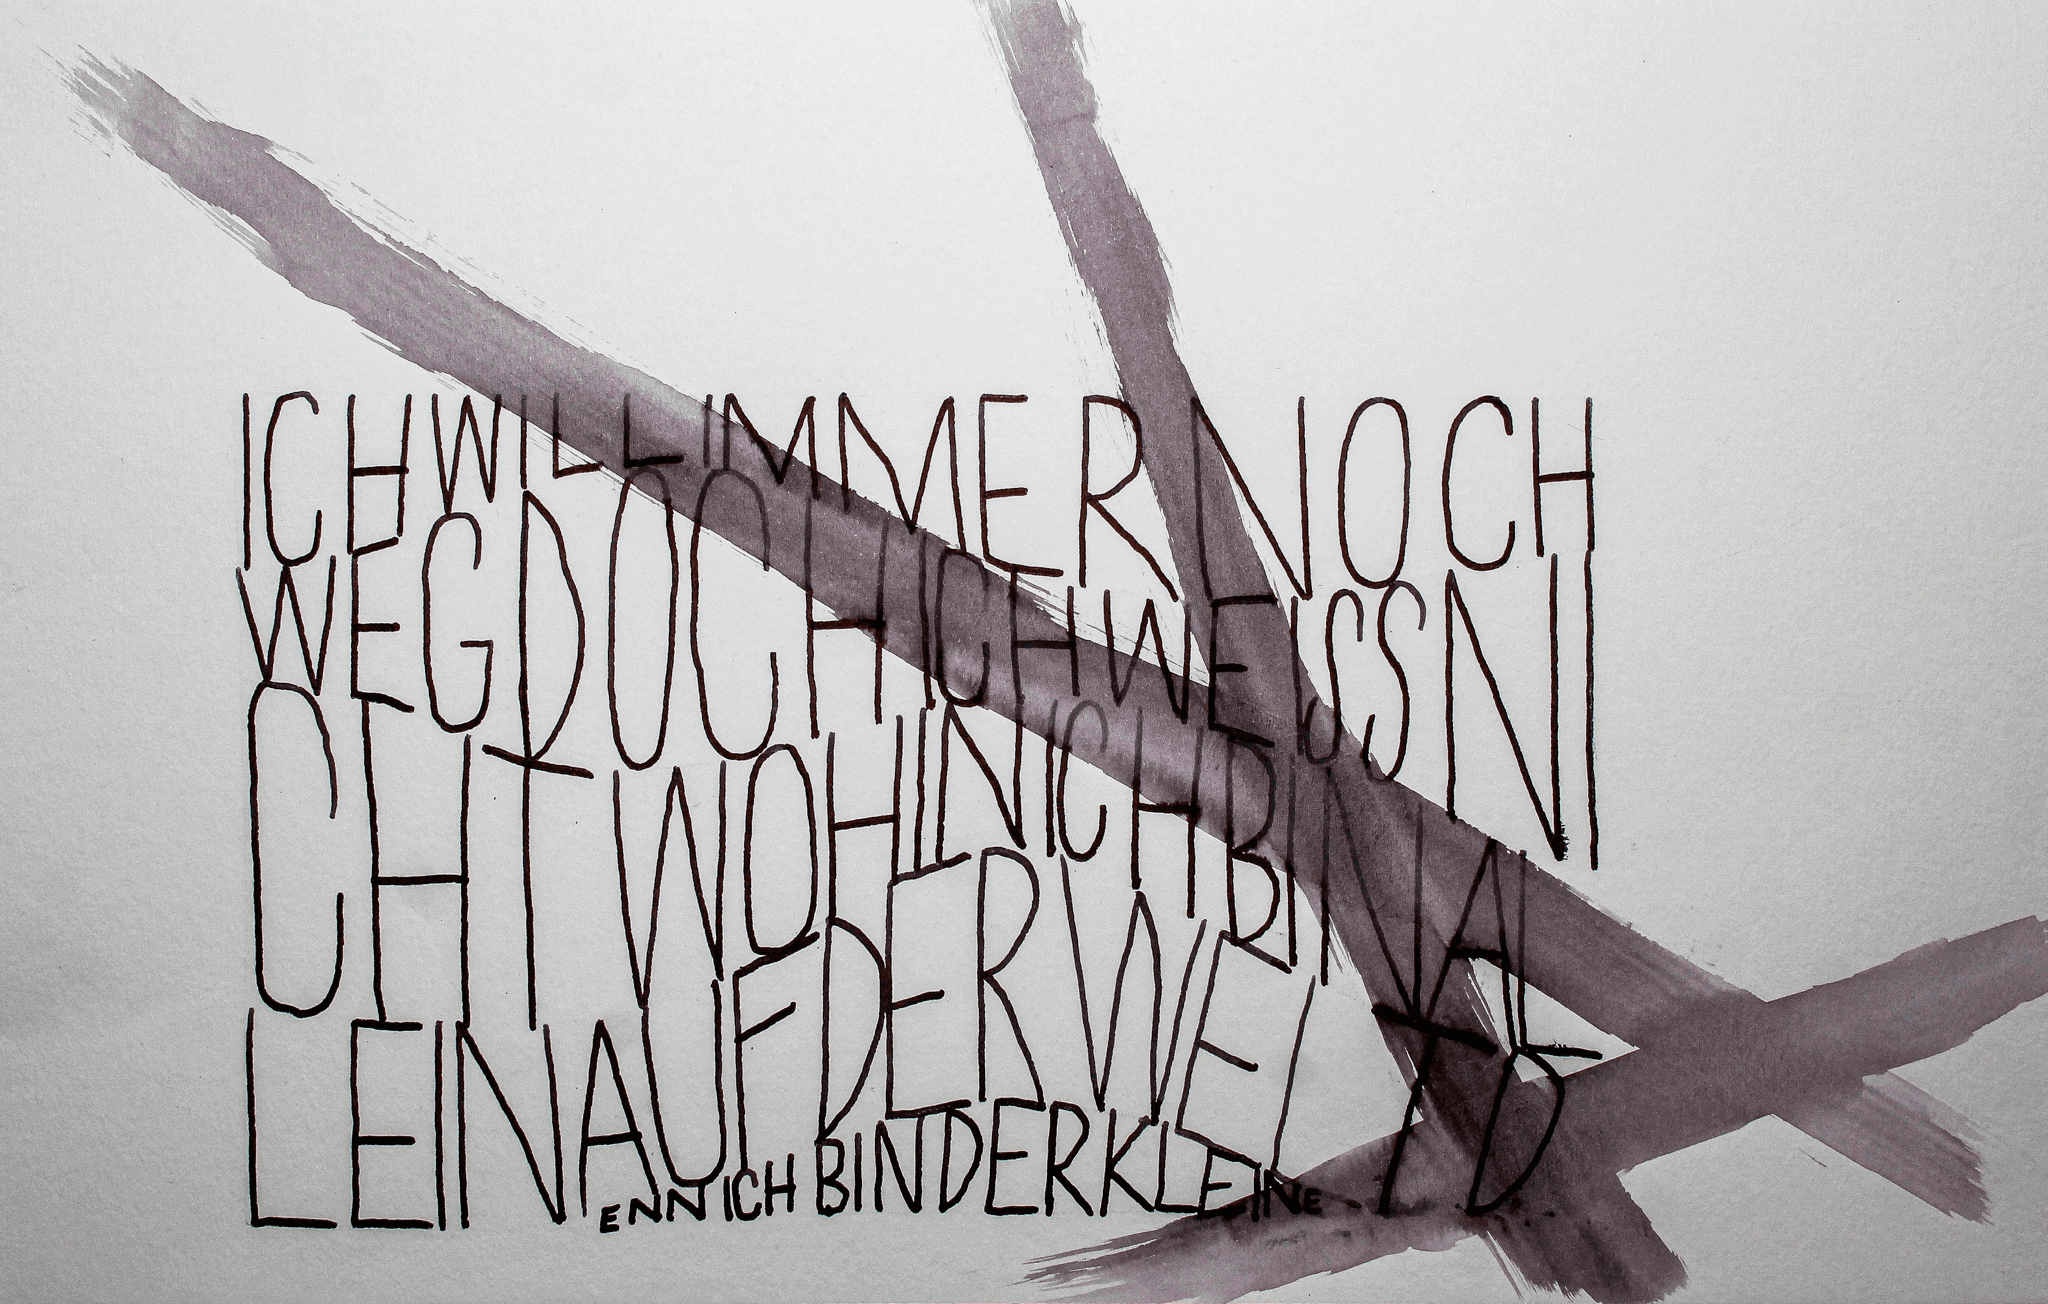 ICHWILLIMMERNOCH
WEGDOCHICHWEISSNI
CHTWOHINICHBINAL
LEINAUFDERWELTD
ENNICHBINDERKLEINE